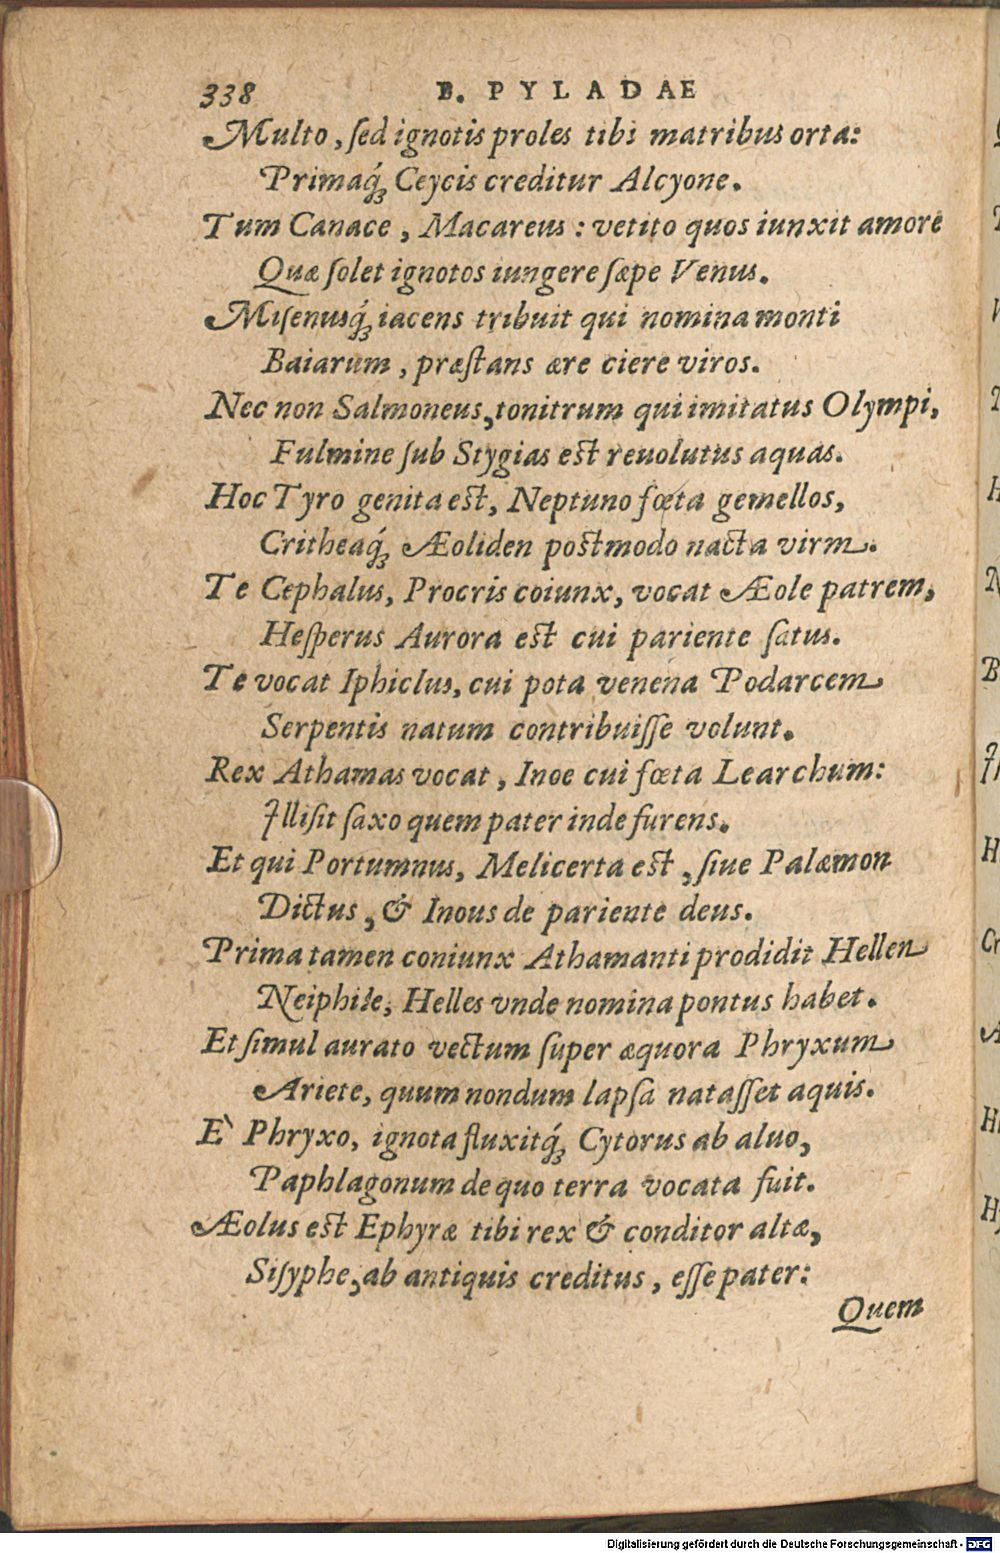 338 B. PYLADAE
Multo, ſed ignotis proles tibi matribus orta:
Primaq́ꝫ Ceycis creditur Alcyone.
Tum Canace, Macareus: vetito quos iunxit amore
Quæ ſolet ignotos iungere ſæpe Venus.
Miſenusq́ꝫ iacens tribuit qui nomina monti
Baiarum, præſtans ære ciere viros.
Nec non Salmoneus, tonitrum qui imitatus Olympi,
Fulmine ſub Stygias est reuolutus aquas.
Hoc Tyro genita est, Neptuno fœta gemellos,
Critheaq́ꝫ Æoliden postmodo nacta virm.
Te Cephalus, Procris coiunx, vocat Æole patrem,
Heſperus Aurora est cui pariente ſatus.
Te vocat Iphiclus, cui pota venena Podarcem
Serpentis natum contribuiſſe volunt.
Rex Athamas vocat, Inoe cui fœta Learchum:
Illiſit ſaxo quem pater inde furens.
Et qui Portumnus, Melicerta est, ſiue Palæmon
Dictus, & Inous de pariente deus.
Prima tamen coniunx Athamanti prodidit Hellen
Neiphile, Helles vnde nomina pontus habet.
Et ſimul aurato vectum ſuper æquora Phryxum
Ariete, quum nondum lapſa nataſſet aquis.
E` Phryxo, ignota fluxitq́ꝫ Cytorus ab aluo,
Paphlagonum de quo terra vocata fuit.
Æolus est Ephyræ tibi rex & conditor altæ,
Siſyphe, ab antiquis creditus, eſſe pater:
Quem
Digitalisierung gefördert durch die Deutsche Forschungsgemeinschaft - DFG